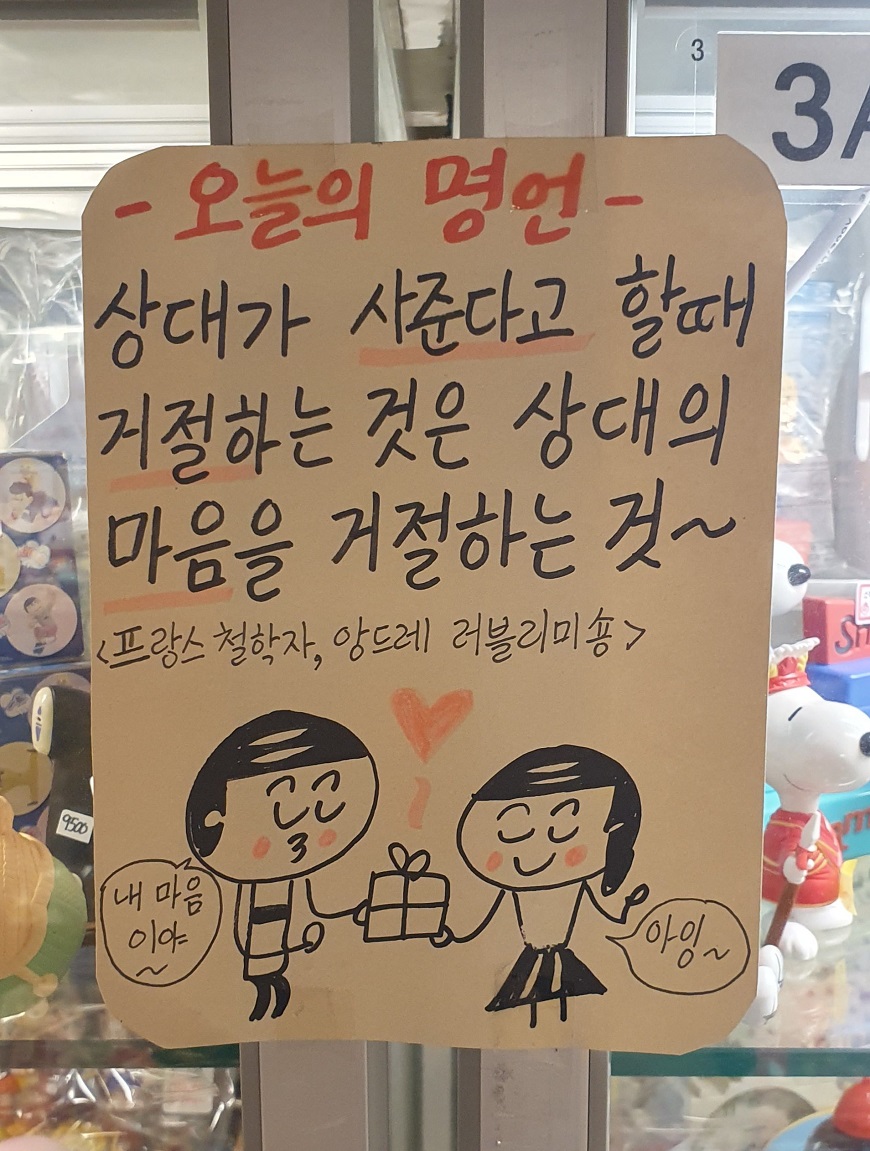 3
3A
- 오늘의 명언 -
상대가 사준다고 할때
거절하는 것은 상대의
마음을 거절하는 것~
<프랑스 철학자, 앙드레 러블리미숑>
내 마음
이야
~
아잉~
9500